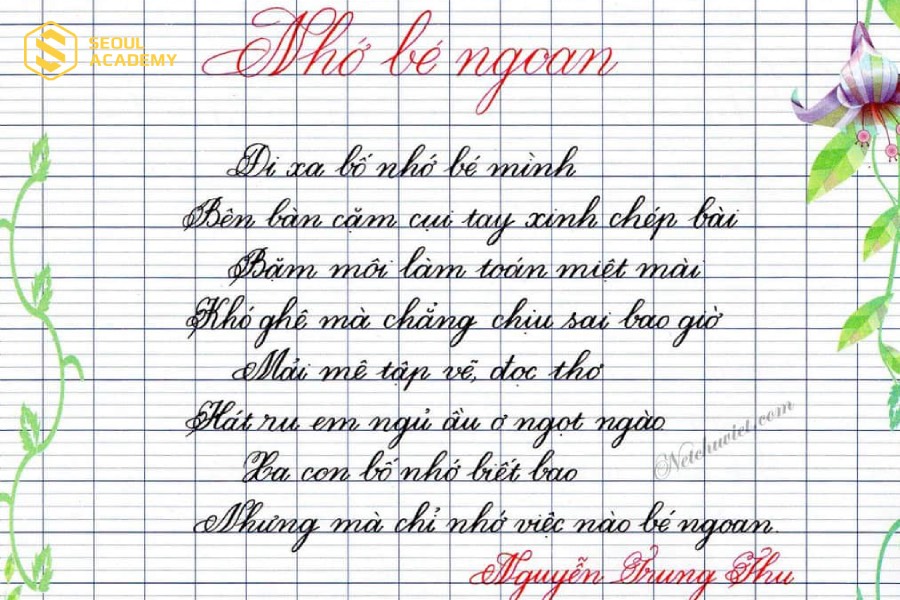 SEOUL
ACADEMY
Nhớ bé ngoan
Đi xa bố nhớ bé mình
Bên bàn cặm cụi tay xinh chép bài
Bặm môi làm toán miệt mài
Khó ghê mà chẳng chịu sai bao giờ
Mải mê tập vẽ, đọc thơ
Hát ru em ngủ ầu ơ ngọt ngào
Xa con bố nhớ biết bao
Nhưng mà chỉ nhớ việc nào bé ngoan.
Nguyễn Trung Thu
Netchuviet.com